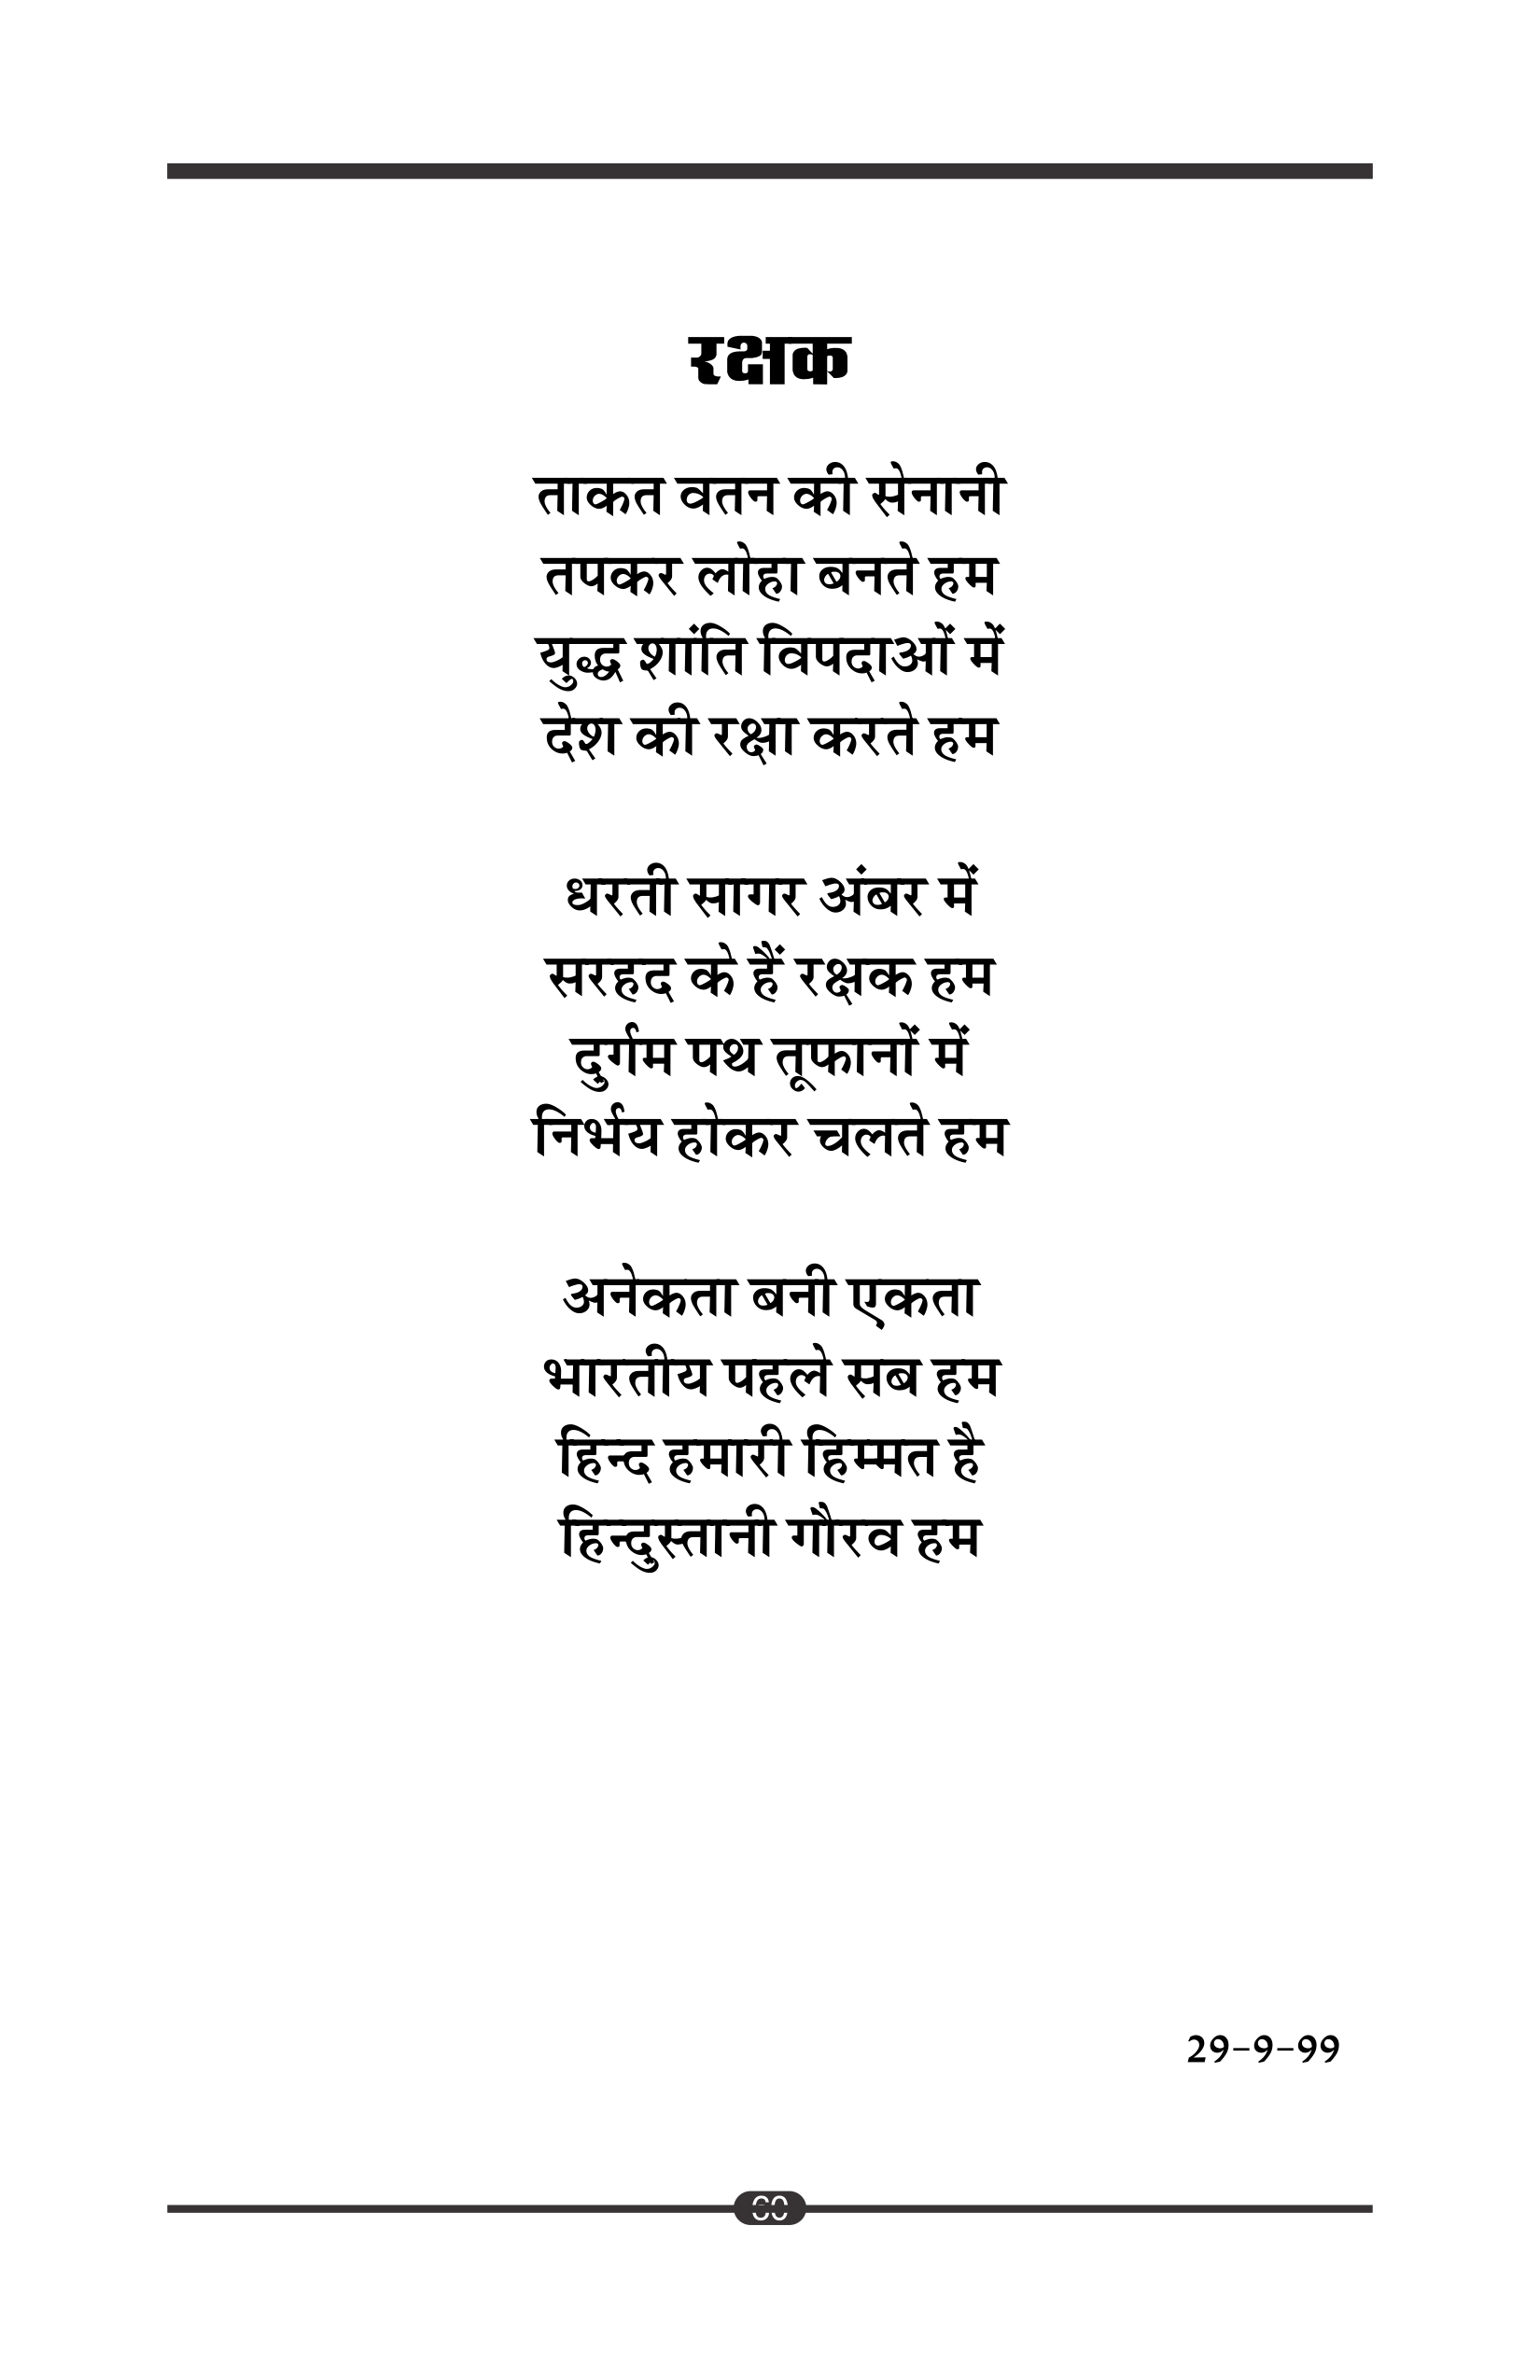 रक्षक
ताकत वतन की सेनानी
तपकर लोहा बनते हम
युद्ध शांति विपदाओं में
देश की रक्षा करते हम
धरती सागर अंबर में
सरहद के हैं रक्षक हम
दुर्गम पथ तूफानों में
निर्भय होकर चलते हम
अनेकता बनी एकता
भारतीय पहले सब हम
हिन्द हमारी हिम्मत है
हिन्दुस्तानी गौरव हम
29-9-99